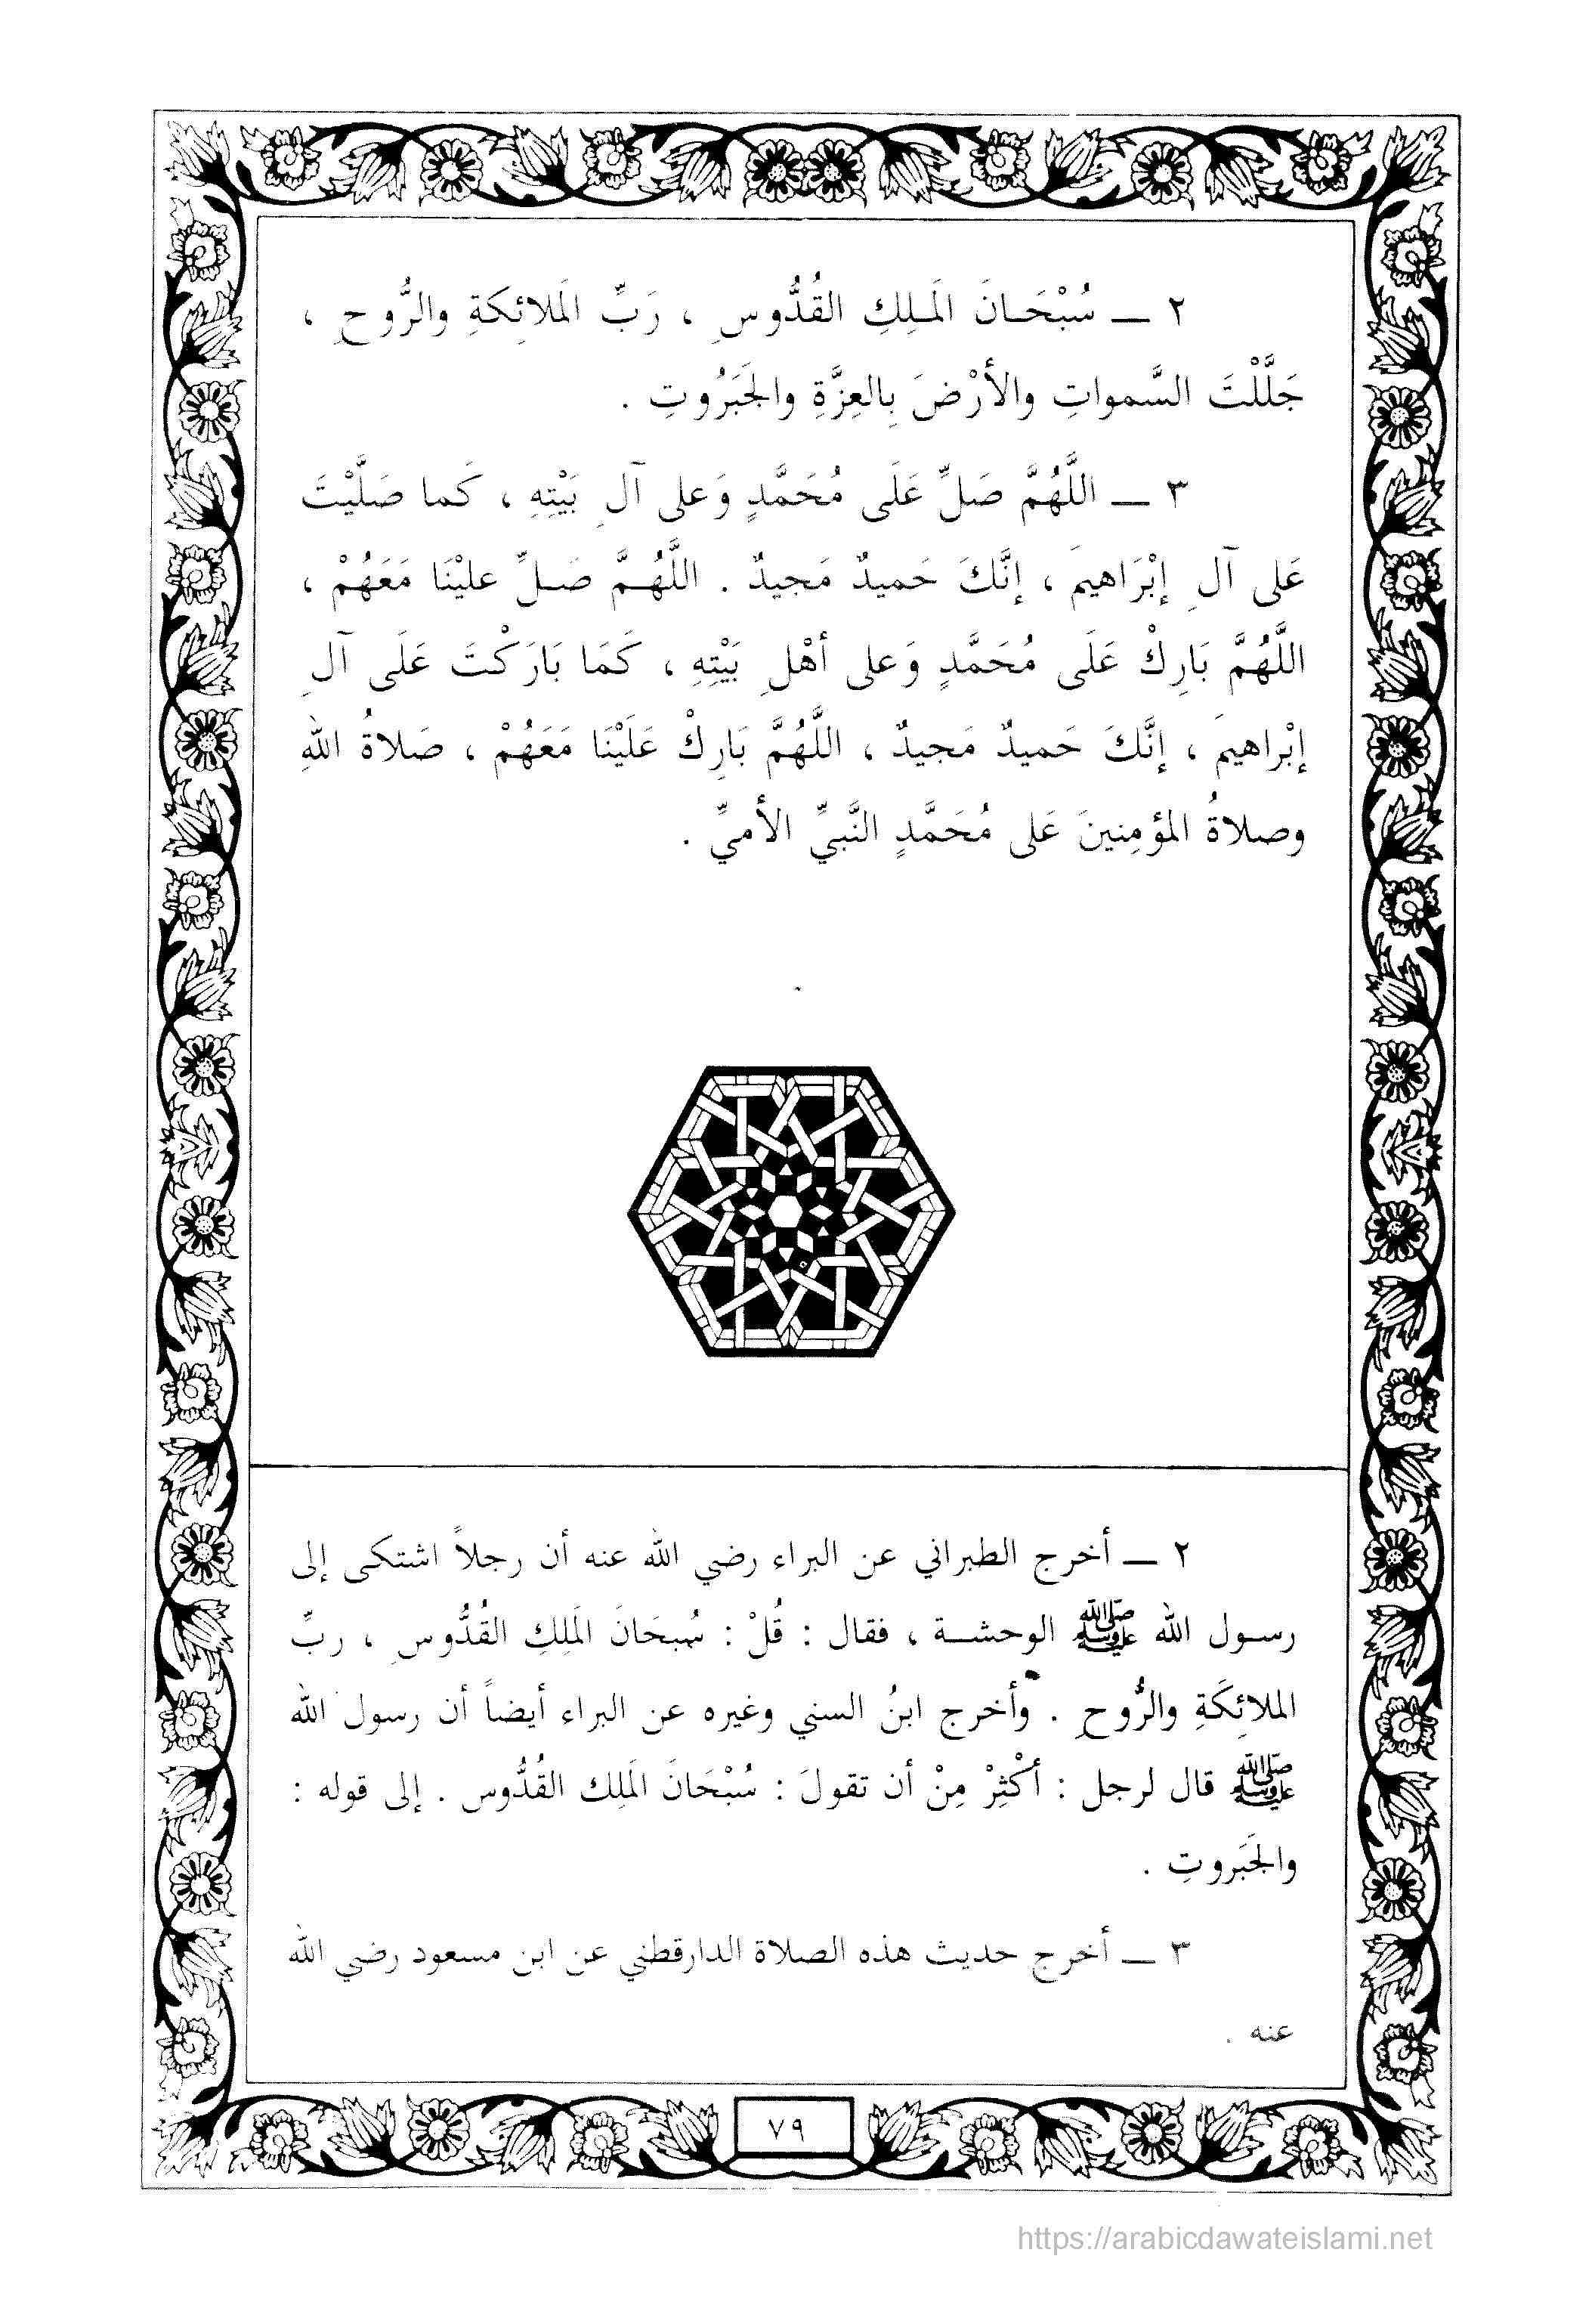 ٢ ــ سُبْحَـانَ الَمـلِكِ القُدُّوسِ ، رَبِّ الَملائِكَةِ والرُّوحِ ،
جَلَّلْتَ السَّمواتِ والأرْضَ بِالعِزَّةِ والجَبَرُوتِ .
٣ ــ اللَّهُمَّ صَلِّ عَلَى مُحَمَّدٍ وَعلى آلِ بَيْتِهِ ، كَما صَلَّيْتَ
عَلى آلِ إبْرَاهيمَ ، إنَّكَ حَميدٌ مَجيدٌ . اللَّهُـمَّ صَـلِّ عليْنَا مَعَهُمْ ،
اللَّهُمَّ بَارِكْ عَلَى مُحَمَّدٍ وَعلى أهْلِ بَيْتِهِ ، كَمَا بَارَكْتَ عَلَى آلِ
إبْراهيمَ ، إنَّكَ حَميدٌ مَجيدٌ ، اللَّهُمَّ بَارِكْ عَلَيْنَا مَعَهُمْ ، صَلاةُ اللهِ
وصلاةُ المؤمِنينَ عَلى مُحَمَّدٍ النَّبيِّ الأميِّ .
٢ ــ أخرج الطبراني عن البراء رضي الله عنه أن رجلاً اشتكى إلى
رسـول الله ﷺ الوحشـة ، فقال : قُلْ : سُبحَانَ الَملِكِ القُدُّوسِ ، ربِّ
الملائِكَةِ والرُّوحِ . وأخرج ابنُ السني وغيره عن البراء أيضاً أن رسول الله
ﷺ قال لرجل : أكْثِرْ مِنْ أن تقولَ : سُبْحَانَ الَملِك القُدُّوس . إلى قوله :
والجَبروتِ .
٣ ــ أخرج حديث هذه الصلاة الدارقطني عن ابن مسعود رضي الله
عنه .
٧٩
https://arabicdawateislami.net